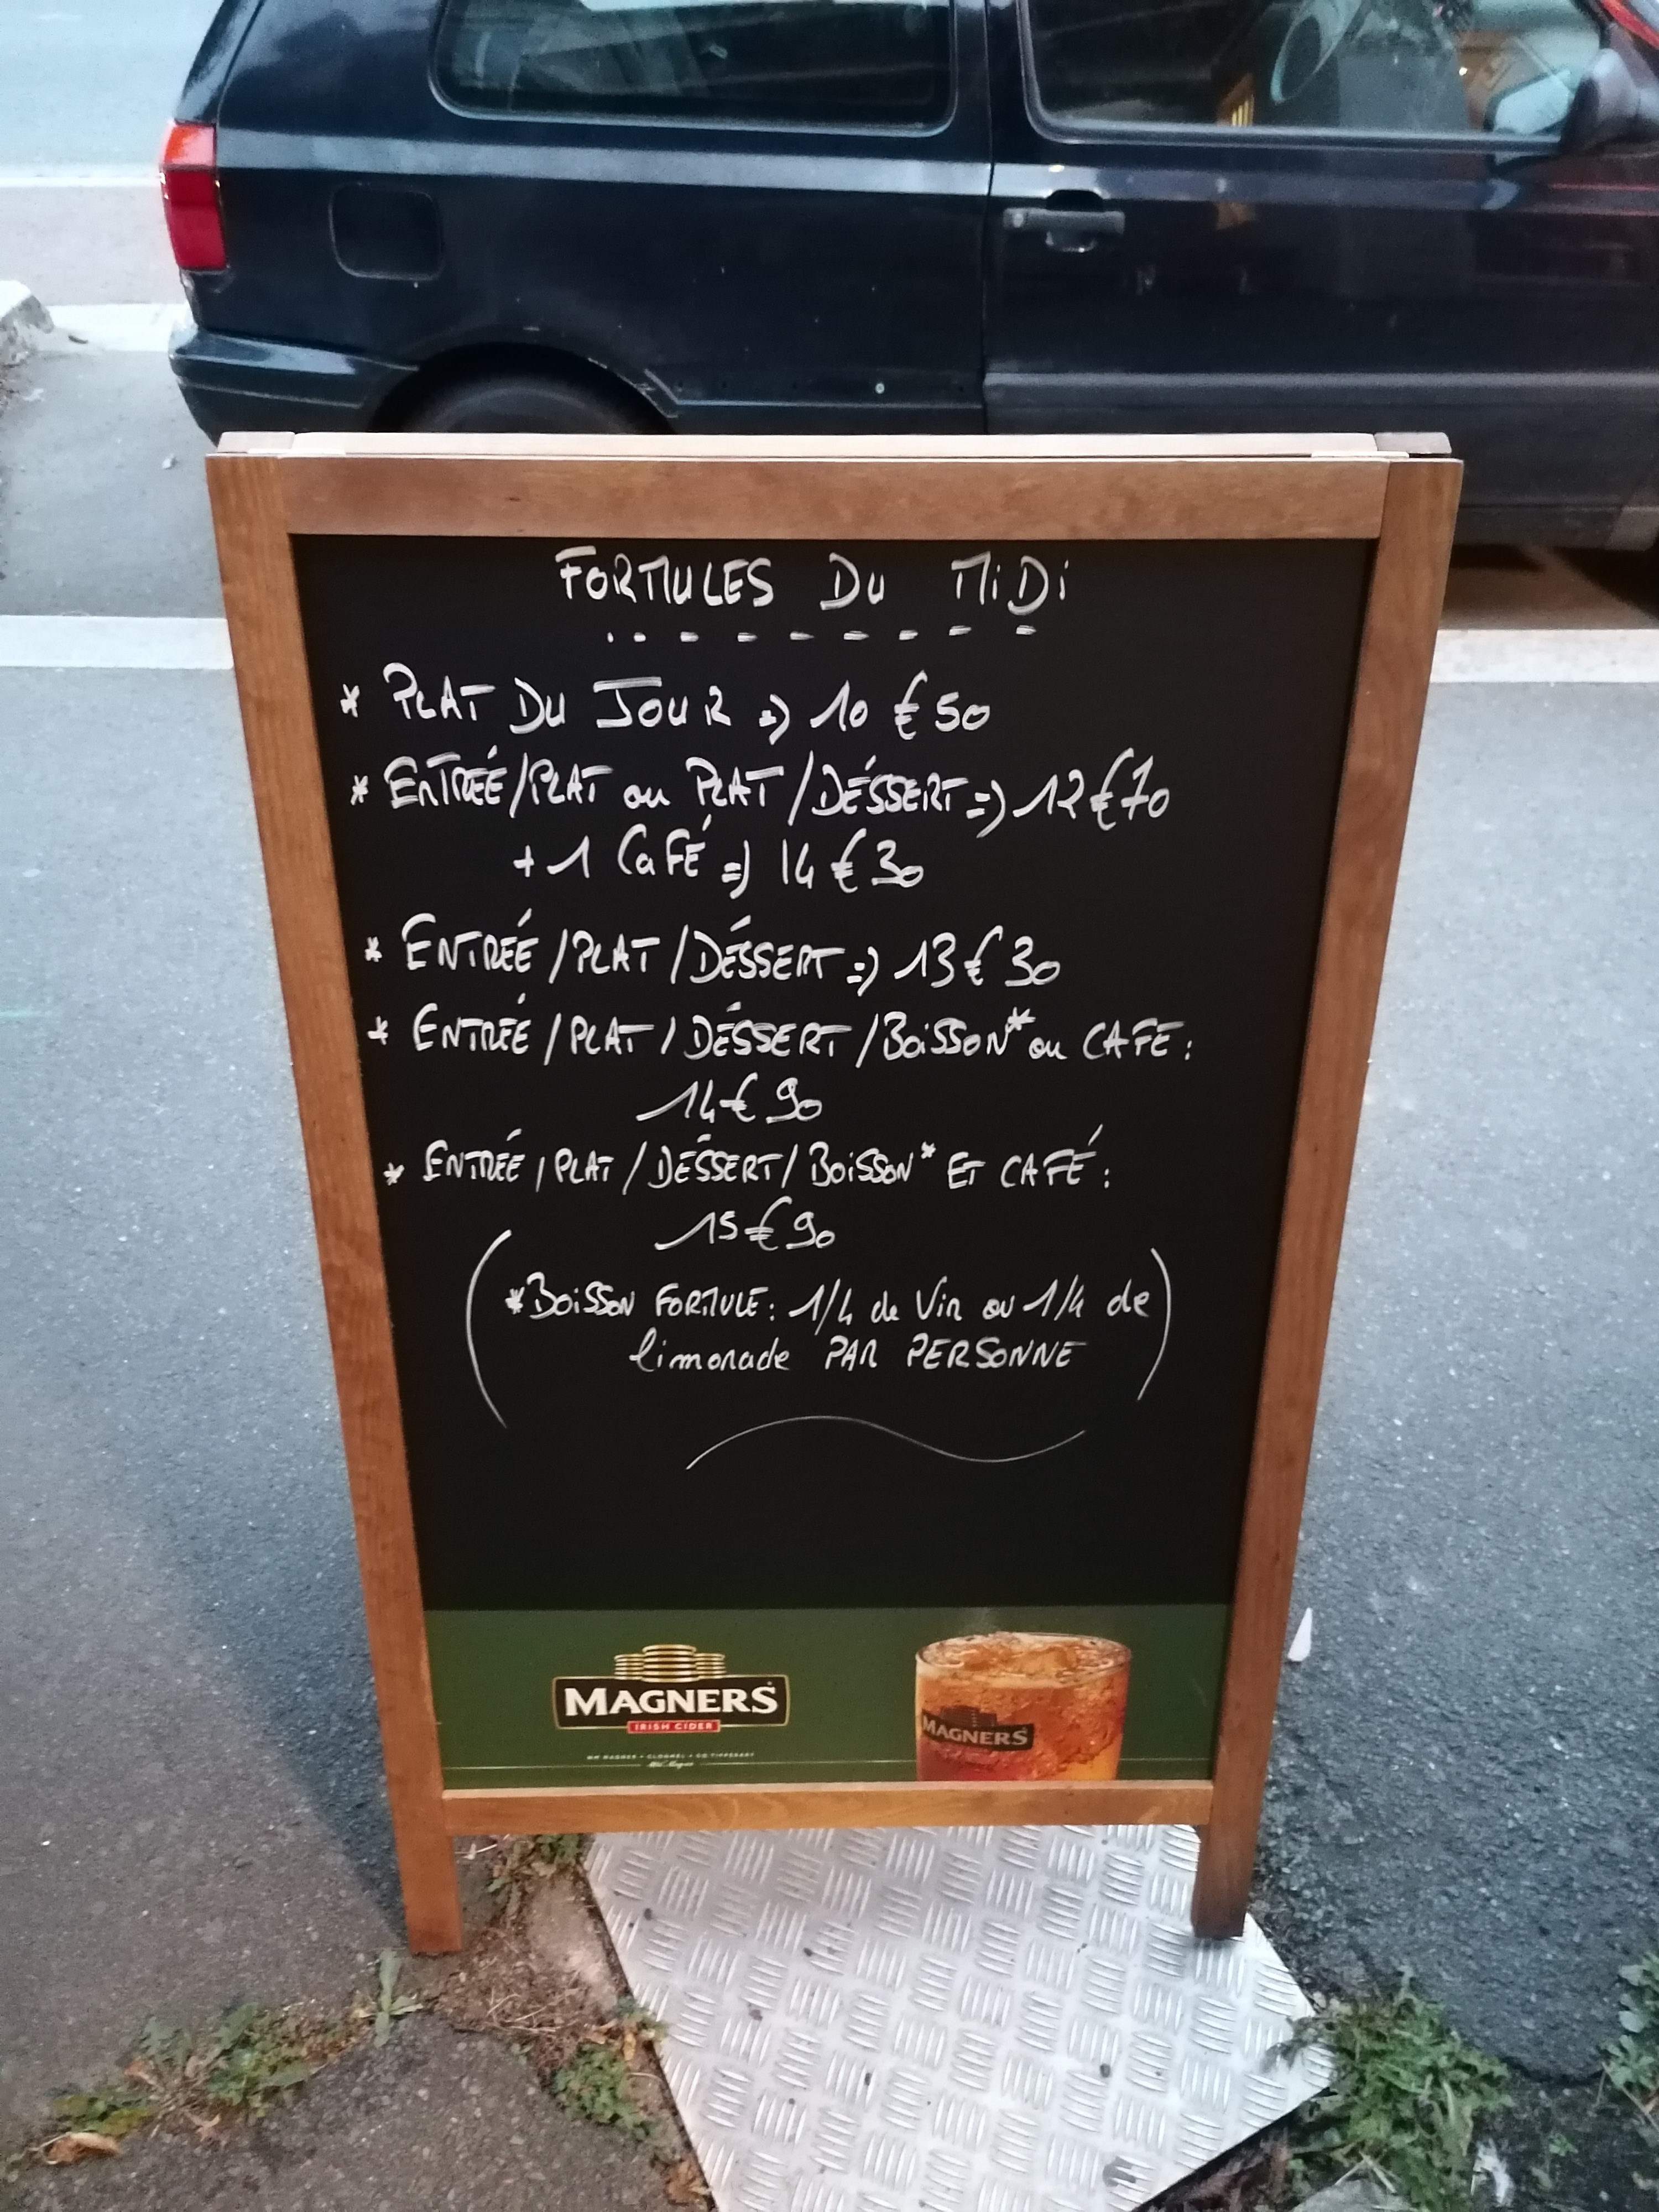 FORMULES DU MiDi
* PLAT DU JOUR => 10 € 50
* ENTRÉE/PLAT ou PLAT/DÉSSERT => 12€70
+ 1 CaFÉ => 14 € 30
* ENTRÉE/PLAT/DÉSSERT => 13€30
* ENTRÉE/PLAT/DÉSSERT/BOiSSON* ou CAFE :
14€90
* ENTRÉE/PLAT/DÉSSERT/BOiSSON* ET CAFÉ :
15€90
(*BOiSSON FORMULE : 1/4 de Vin ou 1/4 de
limonade PAR PERSONNE)
MAGNERS
IRISH CIDER
MAGNERS